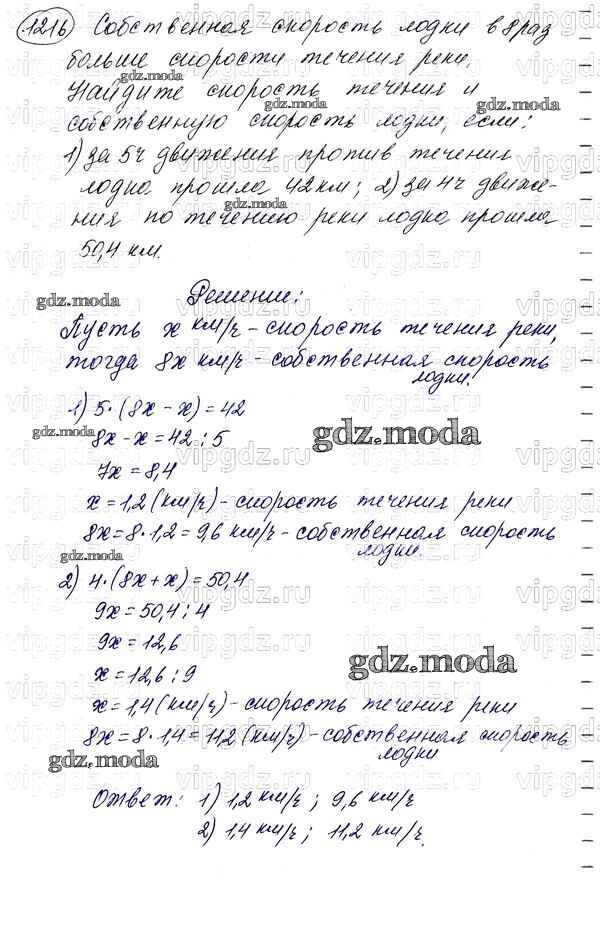 1216 Собственная скорость лодки в 8 раз
больше скорости течения реки.
Найдите скорость течения и
собственную скорость лодки, если:
1) за 5ч движения против течения
лодка прошла 42 км; 2) за 4ч движе-
ния по течению реки лодка прошла
50,4 км.
Решение:
Пусть х км/ч - скорость течения реки,
тогда 8х км/ч - собственная скорость
лодки.
1) 5·(8х - х) = 42
8х - х = 42 : 5
7х = 8,4
х = 1,2 (км/ч) - скорость течения реки
8х = 8·1,2 = 9,6 км/ч - собственная скорость
лодки.
2) 4·(8х + х) = 50,4
9х = 50,4 : 4
9х = 12,6
х = 12,6 : 9
х = 1,4 (км/ч) - скорость течения реки
8х = 8·1,4 = 11,2 (км/ч) - собственная скорость
лодки
Ответ: 1) 1,2 км/ч ; 9,6 км/ч
2) 1,4 км/ч ; 11,2 км/ч.